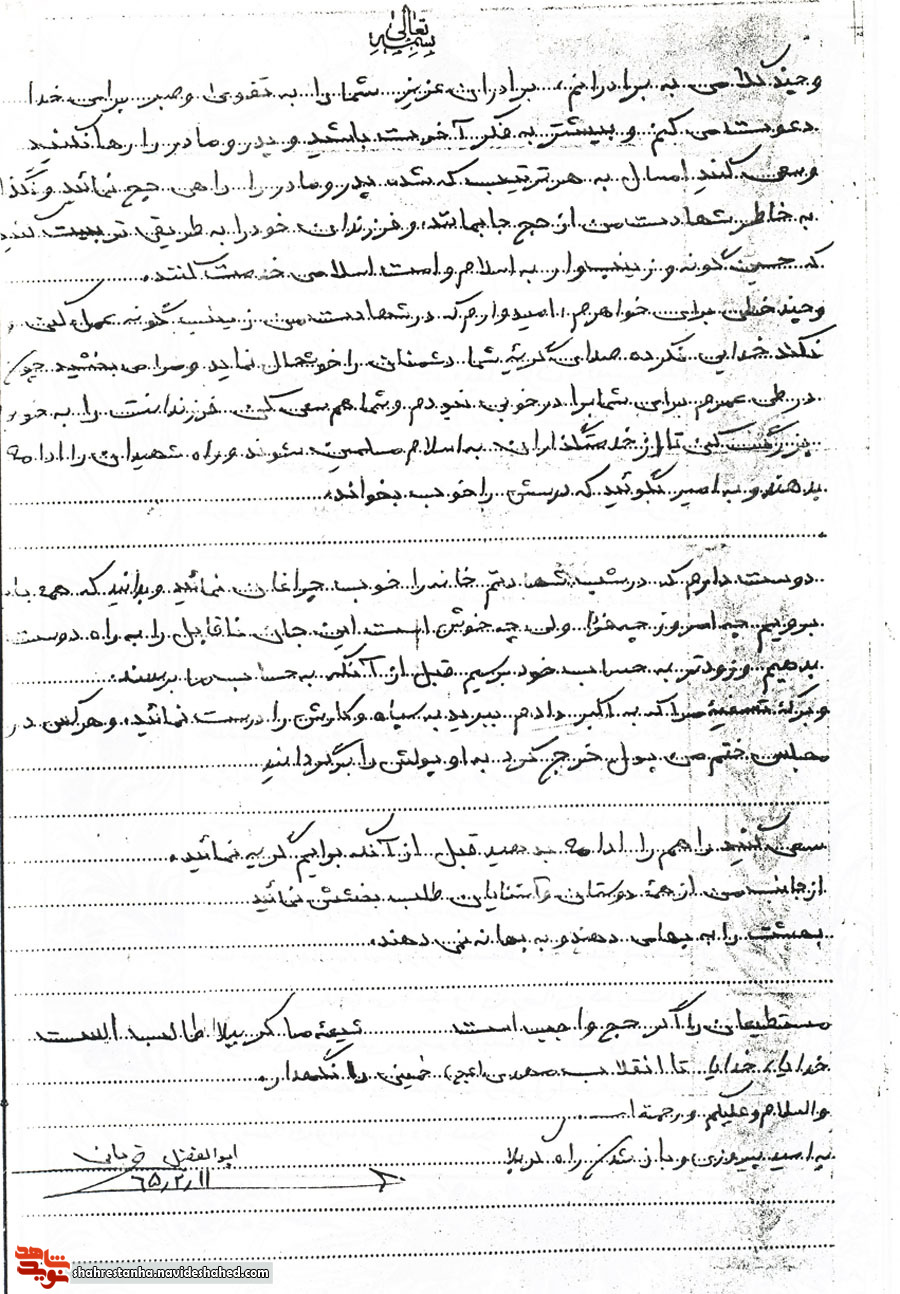 بسمه تعالی
و چند کلامی به برادرانم، برادران عزیز شما را به تقوی و صبر برای خدا
دعوت می کنم و بیشتر به فکر آخرت باشید و پدر و مادر را رها نکنید
و سعی کنید امسال به هر ترتیب که شده پدر و مادر را راهی حج نمائید و نگذا
به خاطر شهادت من از حج جا بمانند و فرزندان خود را به طریقی تربیت کنید
که حسین گونه و زینب وار به اسلام و امت اسلامی خدمت کنند.
و چند خطی برای خواهرم، امیدوارم که در شهادت من زینب گونه عمل کنی و
نکند خدایی نکرده صدای گریه شما دشمنان را خوشحال نماید و مرا می بخشید چون
در طی عمرم برای شما برادر خوبی نبودم و شما هم سعی کن فرزندانت را به خو
بزرگ کنی تا از خدمتگذاران به اسلام مسلمین شوند و راه شهیدان را ادامه
بدهند و به امیر بگوئید که درسش را خوب بخواند.
دوست دارم که در شب شهادتم خانه را خوب چراغان نمائید و بدانید که همه با
برویم چه امروز چه فردا ولی چه خوش است این جان ناقابل را به راه دوست
بدهیم و زودتر به حساب خود برسیم قبل از آنکه به حساب ما برسند.
و برگه تسویه مرا که به اکبر دادم ببرید به سپاه و کارش را درست نمائید و هر کس در
مجلس ختم من پول خرج کرد به او پولش را برگردانید
سعی کنید راهم را ادامه بدهید قبل از آنکه برایم گریه نمائید.
از جانب من از همه دوستان و آشنایان طلب بخشش نمائید
بهشت را به بها می دهند و به بهانه نمی دهند.
مستطیعان را گر حج واجب است شیعه ما کربلا طالب است
خدایا، خدایا تا انقلاب مهدی (عج) خمینی را نگهدار.
والسلام و علیکم و رحمة ا...
به امید پیروزی و باز شدن راه کربلا
ابوالفضل قربانی
۶۵/۲/۱۱
شاهد
نوید
shahrestanha.navideshahed.com